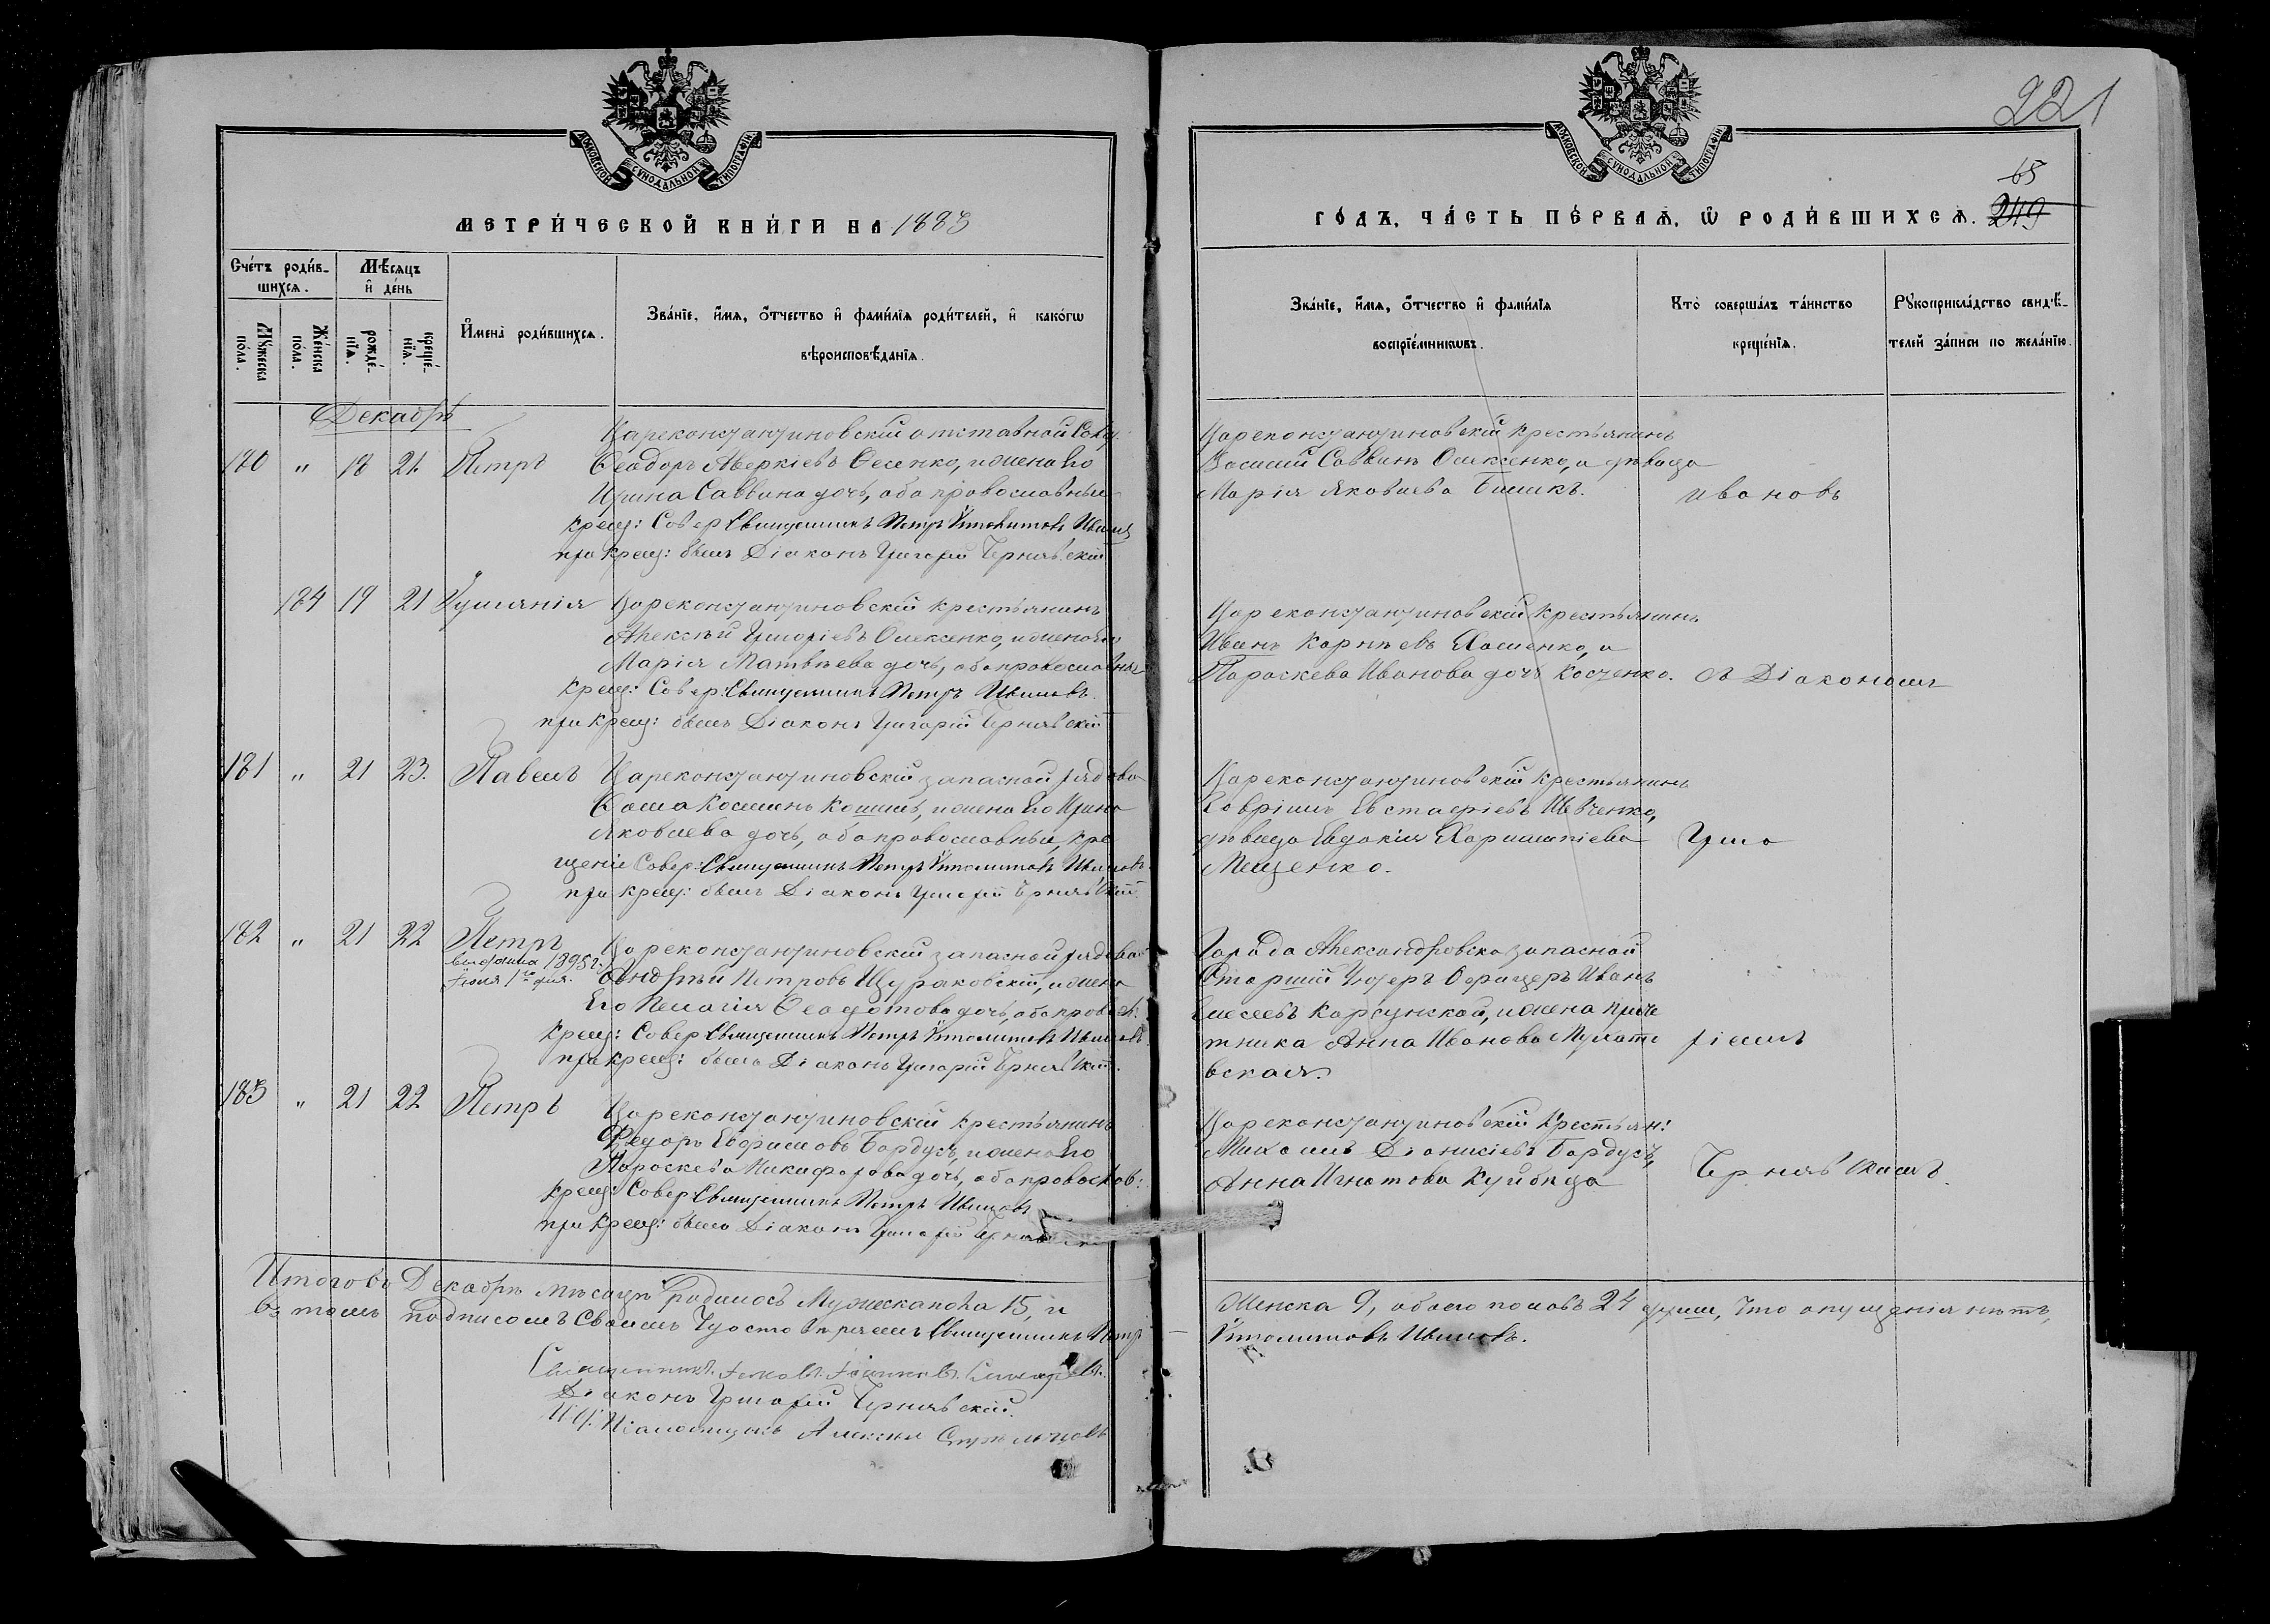 МОСКОВСКОЙ СУНОДАЛЬНОЙ ТИПОГРАФІИ
МЕТРИ́ЧЕСКОЙ КНИ́ГИ НА 1883
Сче́тъ роди́в-
шихсѧ.
Мѣ́сѧцъ
и҆ де́нь
Мꙋ́жеска
по́ла.
Же́нска
по́ла.
рожде́-
нїѧ.
креще́-
нїѧ.
И҆мена̀ роди́вшихсѧ.
Зва́нїе, и҆́мѧ, ѻ҆́тчество и҆ фами́лїѧ роди́телей, и҆ како́гѡ
вѣроисповѣ́данїѧ.
Декабрь
180 " 18 21 Петръ
Цареконстантиновскій отставной
Феодоръ Аверкіевъ Фесенко, и жена его
Ирина Саввина дочь, оба православные
крещ: Совер Священникъ Петръ Ипполитовъ
при крещ: былъ Діаконъ Григорій Чернявскій
184 19 21
Цареконстантиновскій крестьянинъ
Алексѣй Григоріевъ Олексенко, и жена его
Марія Матвѣева дочь, оба православные
крещ: Совер: Священникъ Петръ
при крещ: былъ Діаконъ Григорій Чернявскій
181 " 21 23. Павелъ
Цареконстантиновскій запасной рядовой
Фома Косминъ и жена его Ирина
Яковлева дочь, оба православные, кре
щеніе Совер: Священникъ Петръ Ипполитовъ
при крещ: былъ Діаконъ Григорій Чернявскій
182 " 21 22 Петръ
выдана 1895 г:
Іюня 1го дня.
Цареконстантиновскій запасной рядовой
Андрей Петровъ Щураковскій, и жена
его Пелагія Феодотова дочь, оба правосл:
крещ: Совер Священникъ Петръ Ипполитовъ
при крещ: былъ Діаконъ Григорій Чернявскій.
183 " 21 22 Петръ
Цареконстантиновскій крестьянинъ
Федоръ Ефримовъ Бардусъ, и жена его
Пароскева Никифорова дочь, оба правослов:
крещ: Совер Священникъ Петръ
при крещ: былъ Діаконъ Григорій
Итого въ Декабрѣ мѣсяцѣ родилось Мужеска пола 15, и
въ томъ подписомъ своимъ удостовѣряемъ Священникъ Петръ
Священникъ
Діаконъ Григорій Чернявскій.
И д. Псаломщика Алексѣй
221
65
249
МОСКОВСКОЙ СУНОДАЛЬНОЙ ТИПОГРАФІИ
ГО́ДЪ, ЧА́СТЬ ПЕ́РВАѦ, Ѡ҆ РОДИ́ВШИХСѦ.
Зва́нїе, и҆́мѧ, ѻ҆́тчество и҆ фами́лїѧ
воспрїе́мникѡвъ.
Кто̀ соверша́лъ та́инство
креще́нїѧ.
Рꙋкоприкла́дство свидѣ́-
телей за́писи по жела́нїю.
Цареконстантиновскій крестьянинъ
Василій Саввинъ Олексенко, и дѣвица
Марія Яковлева
Ивановъ
Цареконстантиновскій крестьянинъ
Иванъ Корнѣевъ и
Параскева Иванова дочь Косченко.
съ Діакономъ
Цареконстантиновскій крестьянинъ
Гавріилъ Евстафіевъ Шевченко,
дѣвица Евдокія Харлампіева
Мещенко.
Григо
Города Александровска запасной
Старшій Унтеръ Офицеръ Иванъ
Елесеевъ Карсунской, и жена приче
тника Анна Иванова
вская.
ріемъ
Цареконстантиновскій крестьян:
Михаилъ Діонисіевъ Бардусъ,
Анна Игнатова Куйбида
Чернявскимъ.
Женска 9, обоего половъ 24 души, что опущенія нѣтъ,
Ипполитовъ